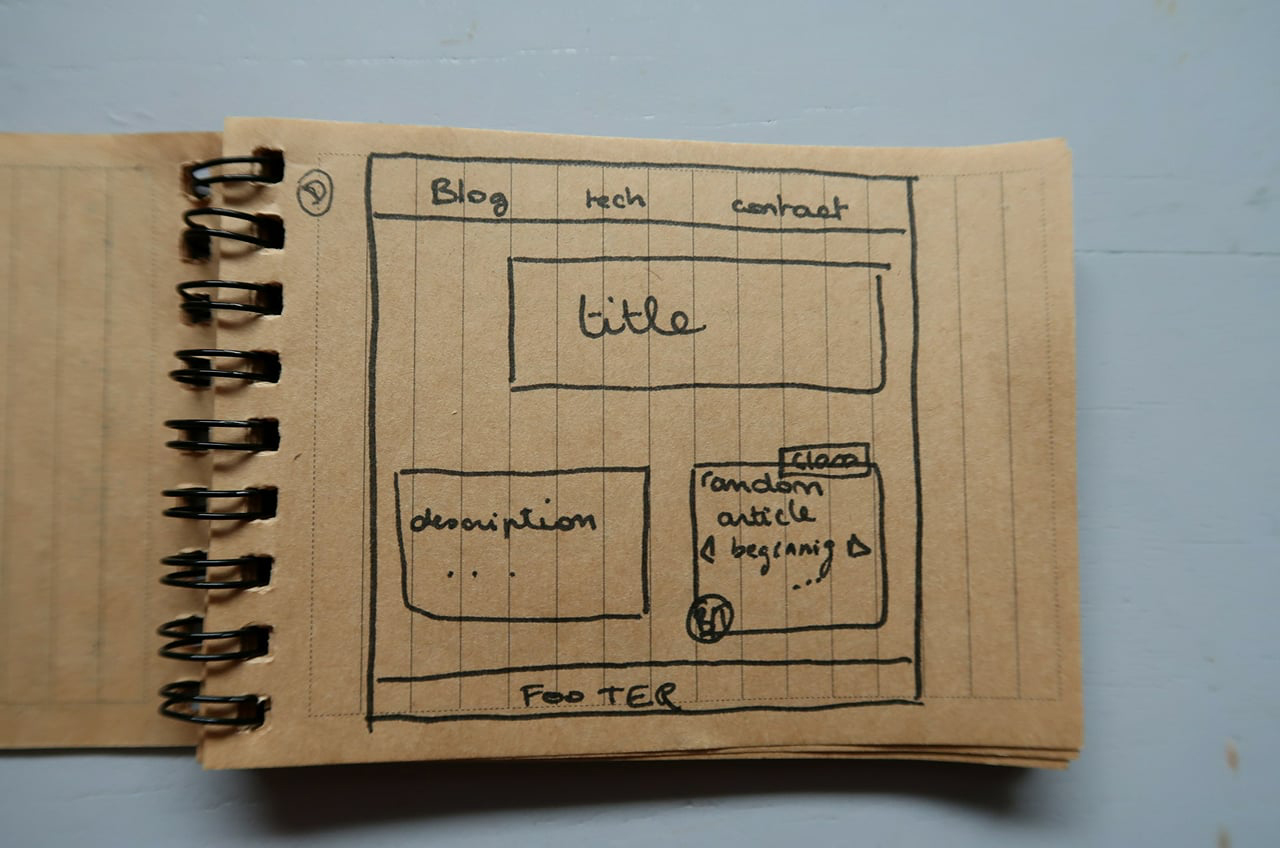 Blog tech contact
title
class
description
...
random
article
beginnig
...
FOOTER